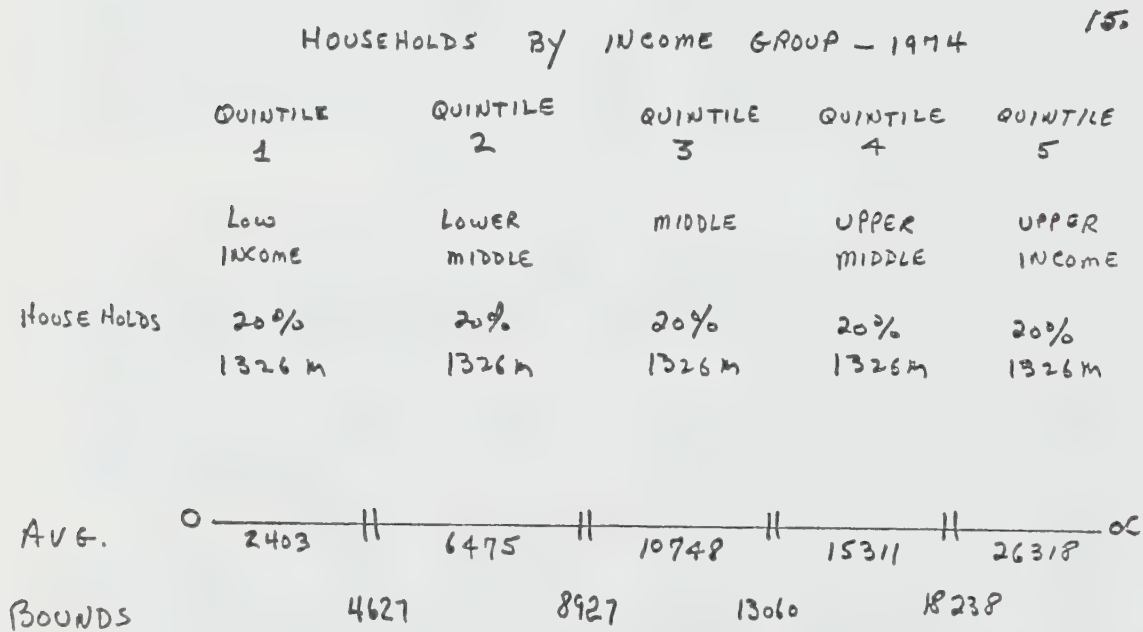 15.
HOUSEHOLDS BY INCOME GROUP - 1974
QUINTILE QUINTILE QUINTILE QUINTILE QUINTILE
1 2 3 4 5
LOW LOWER MIDDLE UPPER UPPER
INCOME MIDDLE MIDDLE INCOME
HOUSEHOLDS 20% 20% 20% 20% 20%
1326 m 1326 m 1326 m 1326 m 1326 m
0 ∝
AVG. 2403 6475 10748 15311 26318
BOUNDS 4627 8927 13060 18238